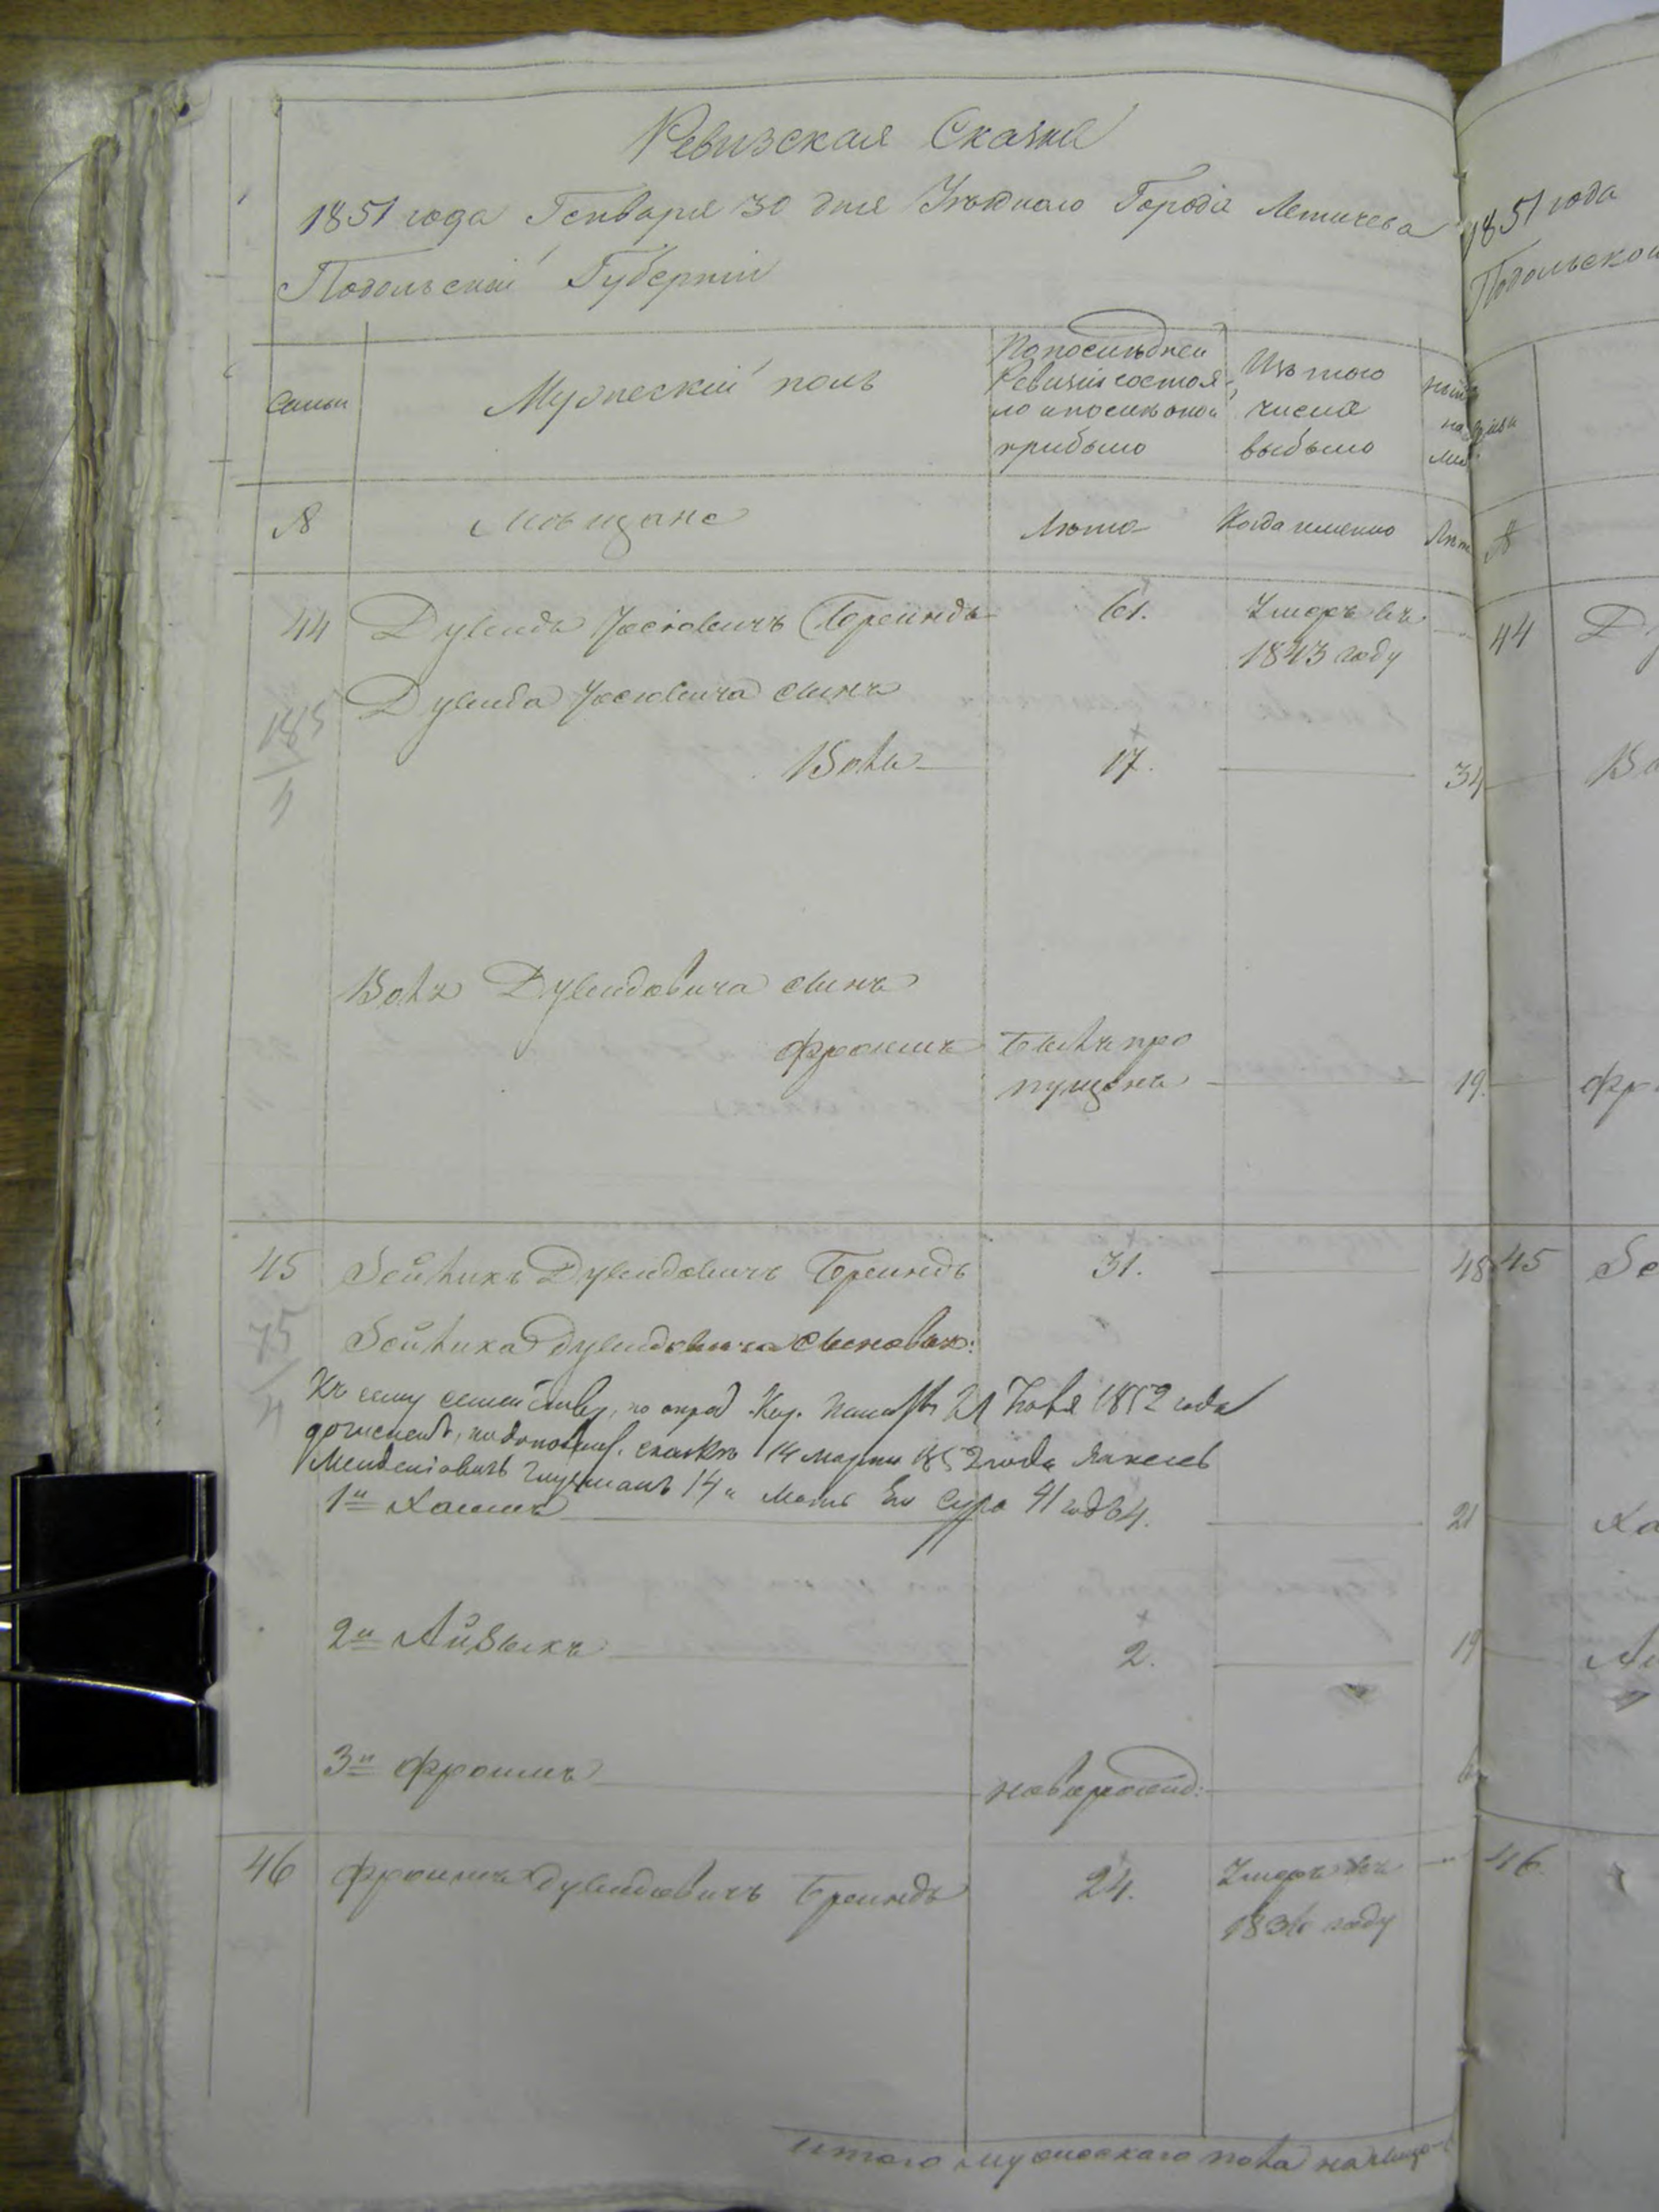 Ревизская Сказка
1851 года Генваря 30 дня Уѣзднаго Города Летичева
Подольской Губерніи
Семьи
Мужескій полъ
По послѣдней
Ревизіи состоя
ло и послѣ оной
прибыло
Изъ того
числа
выбыло
№
Мѣщане
Лѣта
Когда именно
Лѣт
44
Дувидъ Іосіовичъ Бреиндъ
61.
Умеръ въ
1843 году
Дувида Іосіовича сынъ
185
Волъ
17.
34
Волъ Дувидовича сынъ
Фроимъ
Былъ про
пущенъ
19.
45
Зейликъ Дувидовичъ Бреиндъ
31.
48
75
4
Зейлика Дувидовича сыновья:
Къ сему семейству, по опред. Каз. Палаты 21 1852 года
по сказкѣ 14 марта 1852 года
14 Мать Его Сура 41 года
1й Хаимъ
4.
21
2й Айзыкъ
2.
19
3й Фроимъ
новорожд:
46
Фроимъ Дувидовичъ Бреиндъ
24.
Умеръ въ
1836 году
итого мужескаго пола на лицо
1851 года
Подольской
№
44
45
46